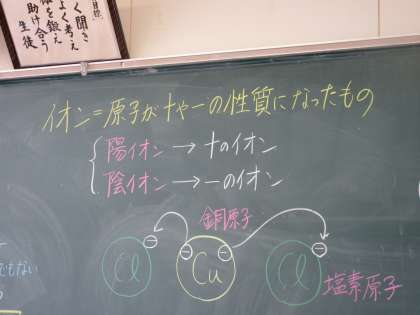 く聞き
よく考え
を鍛え
助け合う
生徒
イオン＝原子が＋や－の性質になったもの
陽イオン→＋のイオン
陰イオン→－のイオン
銅原子
－ － － －
Cl Cu Cl
塩素原子
でもない